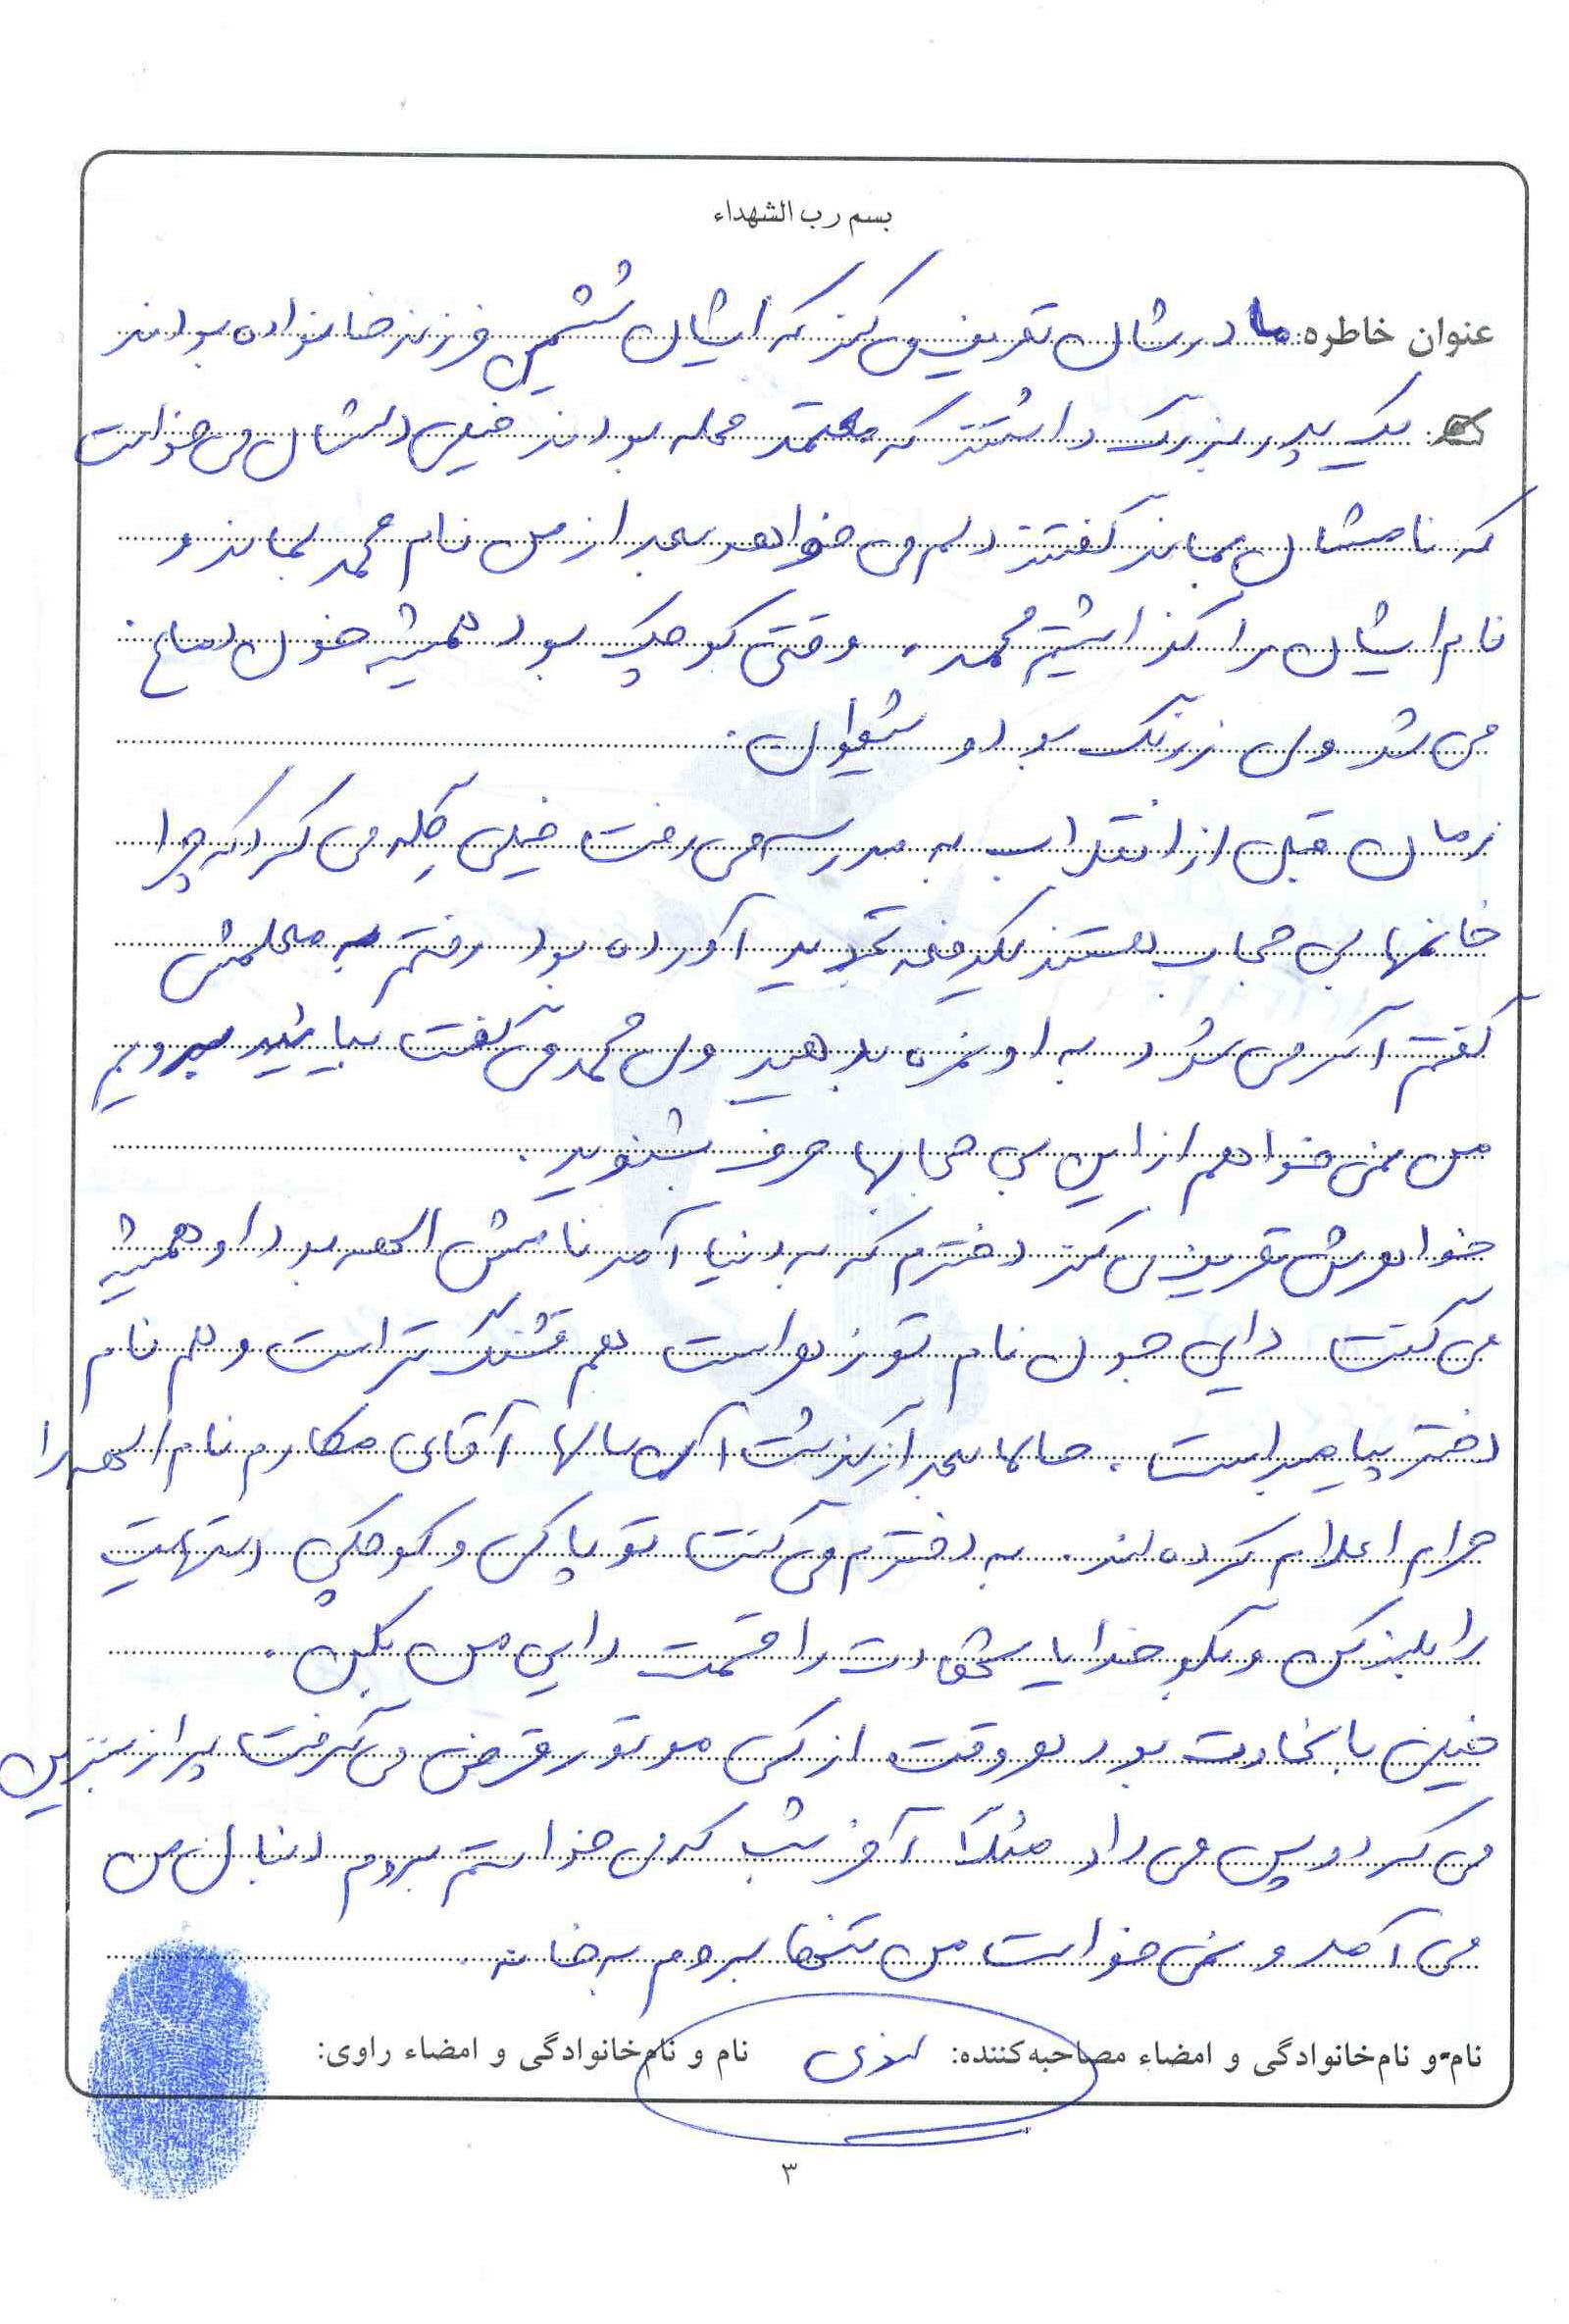 بسم رب الشهداء
عنوان خاطره: مادرشان تعریف می کنند که ایشان ششمین فرزند خانواده بودند
یک پدر بزرگ داشتند که معتمد محله بودند خیلی دلشان می خواست
که نامشان بماند گفتند دلم می خواهد بعد از من نام محمد بماند و
نام ایشان را گذاشتیم محمد. وقتی کوچک بود همیشه خون دماغ
می شد ولی زرنگ بود و شیطون.
زمان قبل از انقلاب به مدرسه می رفت خیلی گله می کرد که چرا
خانمها بی حجاب هستند یکدفعه تجدید آورده بود رفتم به معلمش
گفتم اگر می شود به او نمره بدهید ولی محمد می گفت بیایید برویم
من نمی خواهم از این بی حجابها حرف بشنوید.
خواهرش تعریف می کند دخترم که به دنیا آمد نامش الهه بود او همیشه
می گفت دایی جون نام تو زهراست هم قشنگ تر است و هم نام
دختر پیامبر است. حالا بعد از گذشت آن سالها آقای مکارم نام الهه را
حرام اعلام کرده اند. به دخترم می گفت تو پاکی و کوچکی دستهایت
را بلند کن و بگو خدایا شهادت را قسمت دایی من بکن.
خیلی با سخاوت بود هر وقت از کسی موتور قرض می گرفت پر از بنزین
می کرد و پس می داد مثلاً آخر شب که می خواستم بروم دنبال من
می آمد و نمی خواست من تنها بروم به خانه.
نام و نام خانوادگی و امضاء مصاحبه کننده: نام و نام خانوادگی و امضاء راوی:
۳